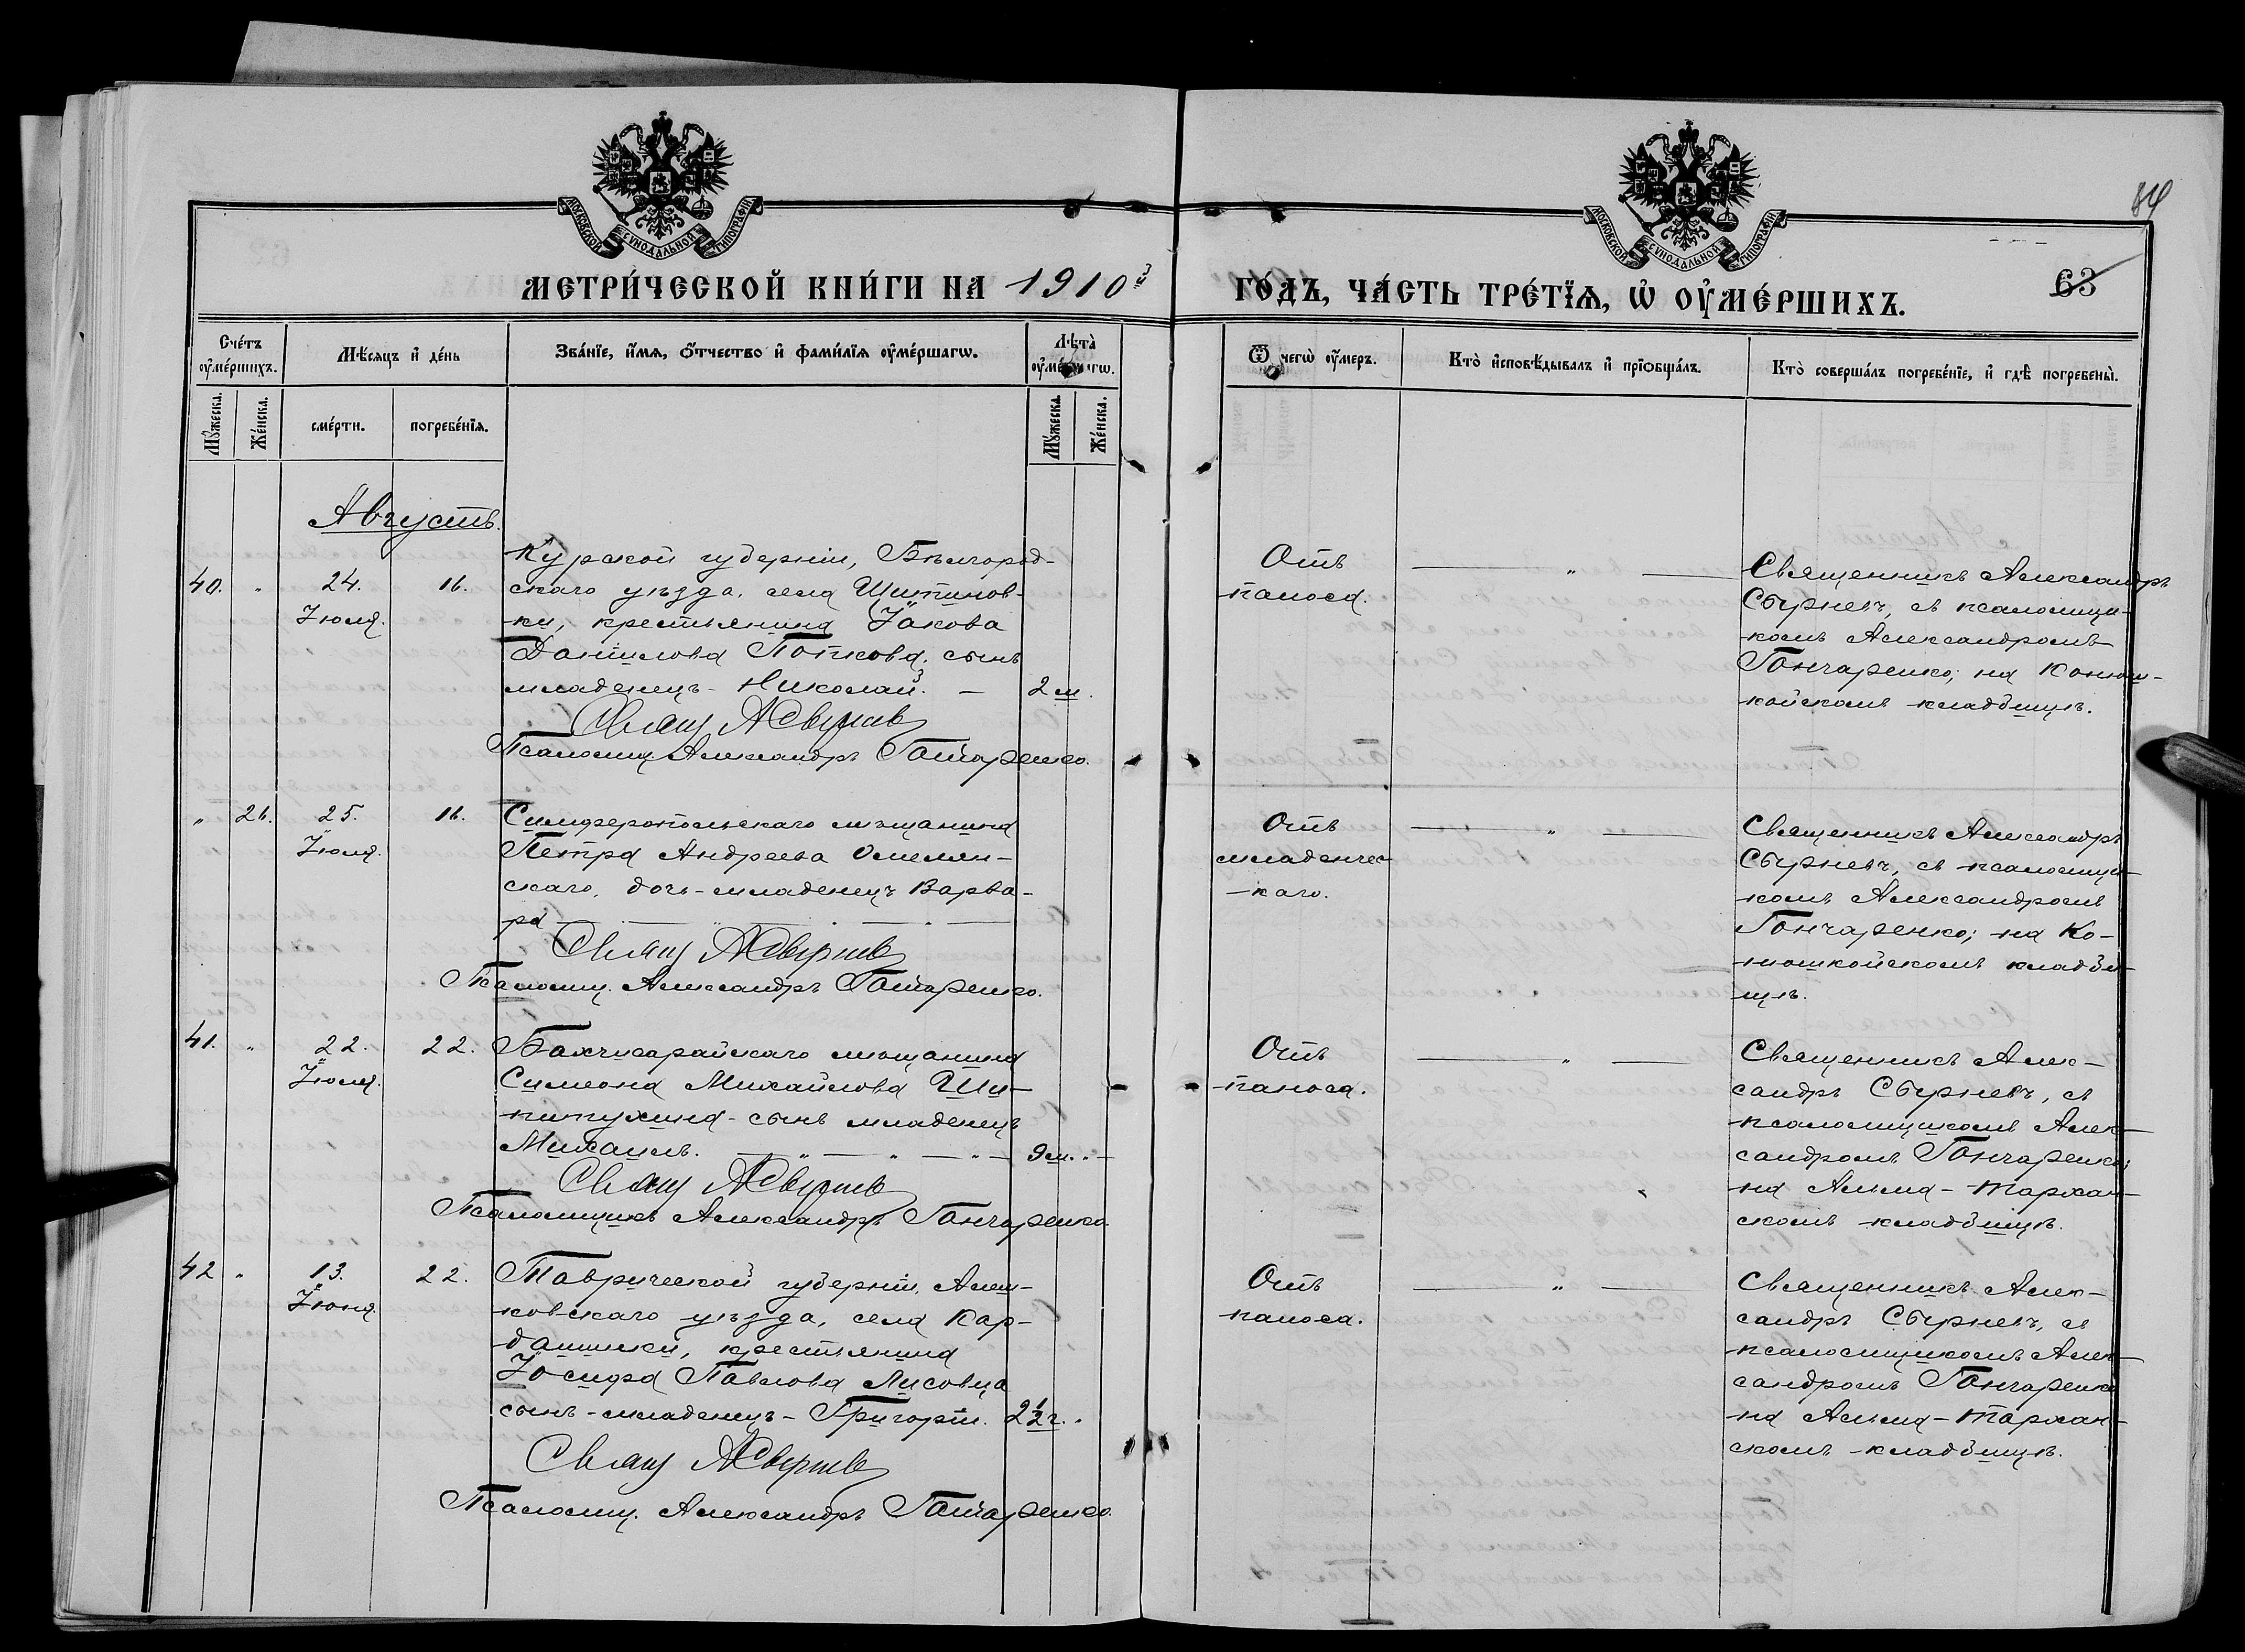 МОСКОВСКОЙ СѴНОДАЛЬНОЙ ТИПОГРАФІИ
МОСКОВСКОЙ СѴНОДАЛЬНОЙ ТИПОГРАФІИ
84
63
МЕТРИ́ЧЕСКОЙ КНИ́ГИ НА 1910й ГО́ДЪ, ЧА́СТЬ ТРЕ́ТЇѦ, Ѡ҆ ОУ҆МЕ́РШИХЪ.
Сче́тъ оу҆ме́ршихъ.
Мѣ́сяцъ и҆ де́нь
Зва́нїе, и҆́мѧ, ѻ҆́тчество и҆ фами́лїѧ оу҆ме́ршагѡ.
Лѣта̀ оу҆ме́ршагѡ.
Ѿ чегѡ̀ оу҆́меръ.
Кто̀ и҆сповѣ́дывалъ и҆ прїѻбща́лъ.
Кто̀ соверша́лъ погребе́нїе, и҆ гдѣ̀ погребены̀.
Мꙋ́жеска.
Же́нска.
сме́рти.
погребе́нїѧ.
Мꙋ́жеска.
Же́нска.
Августъ.
40. " 24. Іюля. 16.
Курской губерніи, Бѣлгород-
скаго уѣзда, села Щитинов-
ки, крестьянина Іакова
Даніилова Попкова, сынъ
младенецъ - Николай. — 2 м.
Свящ АСбурнев
Псаломщ. Александръ Гончаренко.
Отъ
поноса.
— " —
Священникъ Александръ
Сбурневъ, съ псаломщи-
комъ Александромъ
Гончаренко; на Конюш-
койскомъ кладбищѣ.
" 26. 25. Іюля. 16.
Симферопольскаго мѣщанина
Петра Андреева Омелян-
скаго, дочь - младенецъ Варва-
ра
Свящ АСбурнев
Псаломщ. Александръ Гончаренко.
Отъ
младенчес-
каго.
— " —
Священникъ Александръ
Сбурневъ, съ псаломщи-
комъ Александромъ
Гончаренко; на Ко-
нюшкойскомъ кладби-
щѣ.
41. " 22. Іюля. 22.
Бахчисарайскаго мѣщанина
Симеона Михайлова Ши-
питухина - сынъ младенецъ
Михаилъ. — " — " — " — 9 м. "
Свящ АСбурнев
Псаломщикъ Александръ Гончаренко
Отъ
поноса.
— " —
Священникъ Алек-
сандръ Сбурневъ, съ
псаломщикомъ Алек-
сандромъ Гончаренко;
на Альма - Тархан-
скомъ кладбищѣ.
42 " 13. Іюня. 22.
Таврической губерніи, Алеш-
ковскаго уѣзда, села Кар-
дашики, крестьянина
Іосифа Павлова Лисовца
сынъ - младенецъ - Григорій. 2½ г. "
Свящ АСбурнев
Псаломщ. Александръ Гончаренко.
Отъ
поноса.
— " —
Священникъ Алек-
сандръ Сбурневъ, съ
псаломщикомъ Алек-
сандромъ Гончаренко
на Альма - Тархан-
скомъ кладбищѣ.